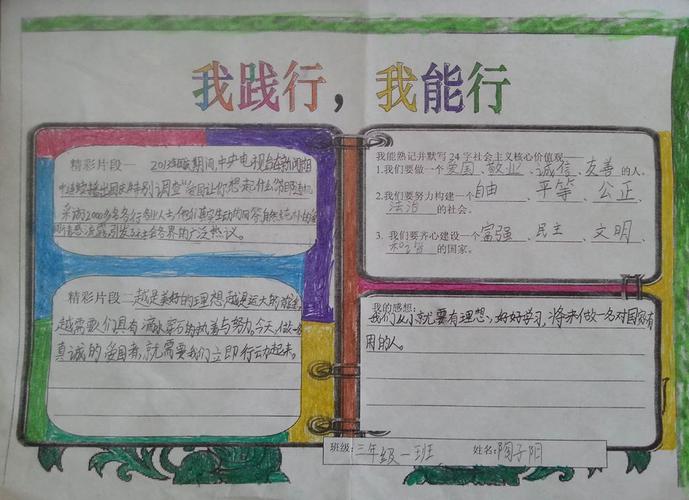 我践行，我能行
精彩片段一 2013国庆期间,中央电视台在新闻
中连续播出国庆特别调查"爱国让你想起什么"
采访2000多名各行专业人士,他们真实生动的回答,自然
情感流露,引发了社会各界的广泛热议。
精彩片段 越是美好的理想,越是远大的
越需要人们具有滴水穿石的执着与努力,今天,做一名
真诚的爱国者,就需要我们立即行动起来。
我能熟记并默写24字社会主义核心价值观
1.我们要做一个爱国、敬业、诚信、友善的人。
2.我们要努力构建一个自由 平等、公正、
法治的社会。
3. 我们要齐心建设一个富强、民主、文明
和谐的国家。
我的感想:
我们从小就要有理想,好好学习,将来做一名对国家有
用的人。
班级:三年级一班 姓名:陶子阳